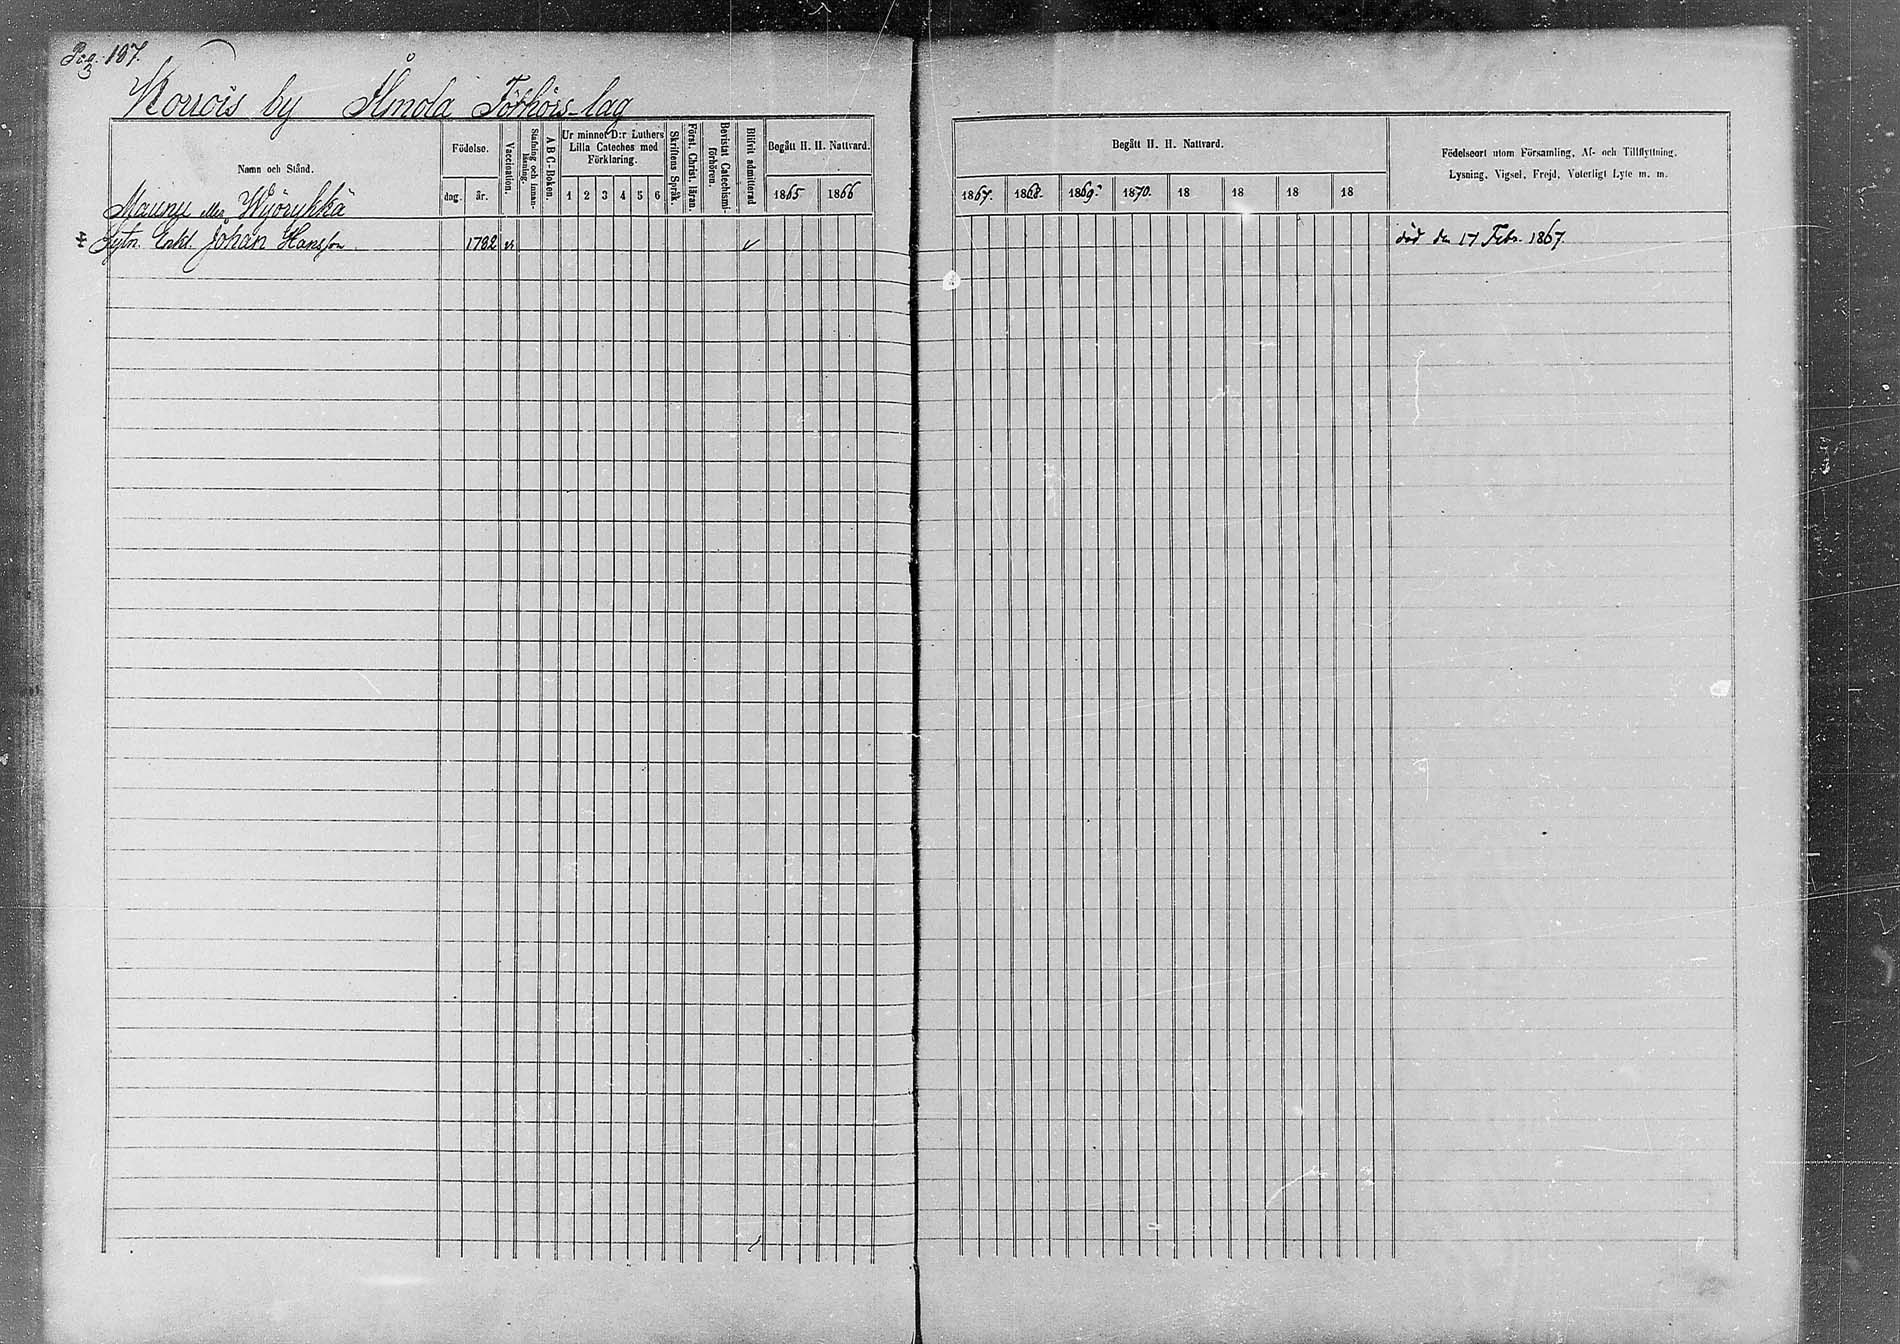 Pag. 107.
3
Korrois by Ilmola Förhörs-lag
Namn och Stånd.
Födelse.
dag.
år.
Vaccination.
Stafning och innanläsning.
A B C-Boken.
Ur minnet D:r Luthers
Lilla Cateches med
Förklaring.
1 2 3 4 5 6
Skriftens Språk.
Först. Christ. läran.
Bevistat Catechismiförhören.
Blifvit admitterad
Begått H. H. Nattvard.
1865 1866
Begått H. H. Nattvard.
1867. 1868. 1869. 1870. 18 18 18 18
Födelseort utom Församling, Af- och Tillflyttning,
Lysning, Vigsel, Frejd, Veterligt Lyte m. m.
Maunu eller
Johan Hansson 1782 död den 17 Febr. 1867.